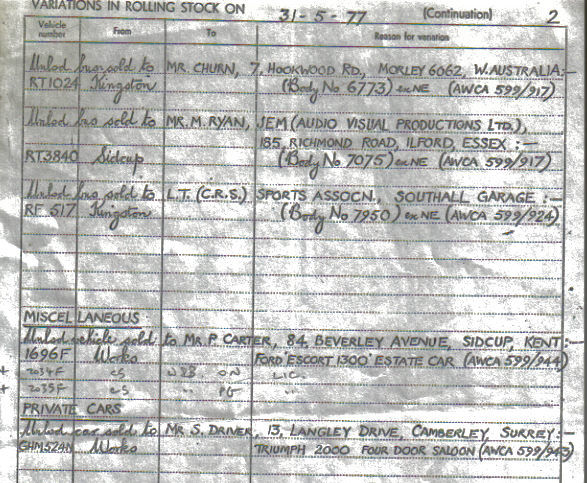 VARIATIONS IN ROLLING STOCK ON 31-5-77 (Continuation) 2
Vehicle number From To Reason for variation
Unlsd bus sold to MR. CHURN, 7, HOOKWOOD RD., MORLEY 6062, W. AUSTRALIA:—
RT1024 Kingston (Body No 6773) ex NE (AWCA 599/917)
Unlsd bus sold to MR. M. RYAN, JEM (AUDIO VISUAL PRODUCTIONS LTD.),
185, RICHMOND ROAD, ILFORD, ESSEX :—
RT3840 Sidcup (Body No 7075) ex NE (AWCA 599/917)
Unlsd bus sold to L.T. (C.R.S.) SPORTS ASSOCN., SOUTHALL GARAGE :—
RF 517 Kingston (Body No 7950) ex NE (AWCA 599/924)
MISCELLANEOUS
Unlsd vehicle sold to Mr. P. CARTER, 84, BEVERLEY AVENUE, SIDCUP, KENT:—
1696F Works FORD 'ESCORT 1300' ESTATE CAR (AWCA 599/944)
+ 2034F ON LIC.
+ 2035F
PRIVATE CARS
Unlsd car sold to MR S. DRIVER, 13, LANGLEY DRIVE, CAMBERLEY, SURREY:—
GHM524N Works TRIUMPH 2000 FOUR DOOR SALOON (AWCA 599/943)